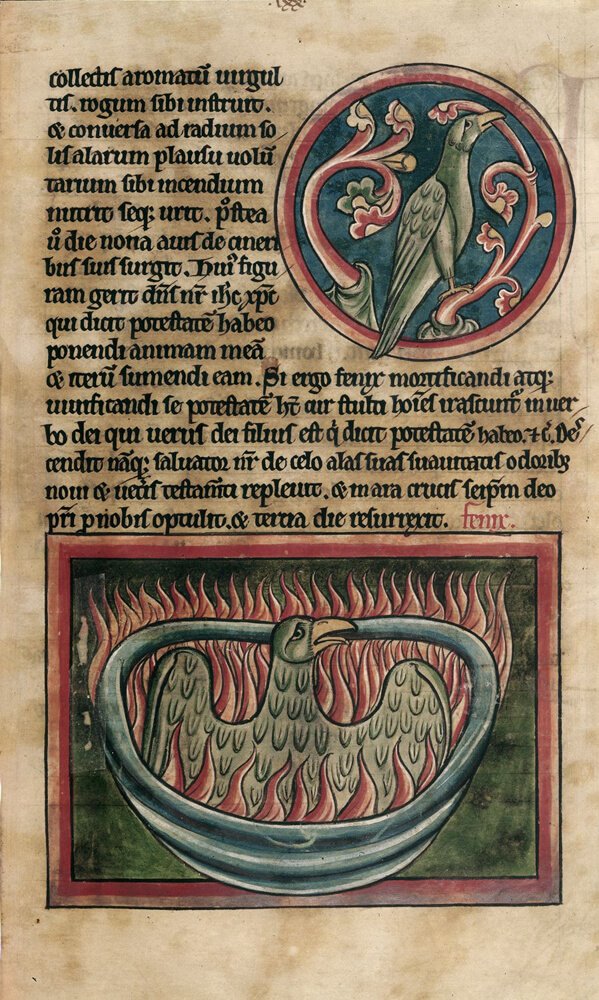 collectis aromatū uirgul
tis. rogum sibi instruit.
& conuersa ad radium so
lis alarum plausu uolū
tarium sibi incendium
nutrit seq; urit. p̾stea
ū die nona auis de cineri
bus suis surgit. Hui᾽ figu
ram gerit dn̄s nr̄ ihc xp̄c
qui dicit potestatē habeo
ponendi animam meā
& iterū sumendi eam. Si ergo fenix mortificandi atq;
uiuificandi se potestatē ht̄ cur stulti hoīes irascunt᾽ in uer
bo dei qui uerus dei filius est q̇ dicit potestatē habeo. ⁊ c̄. Des
cendit nāq; saluator nr̄ de celo alas suas suauitatis odorib;
noui & uet᾽is testam̄ti repleuit. & in ara crucis seip̄m deo
pr̄i ꝓ nobis optulit. & tercia die resurrexit. fenix.